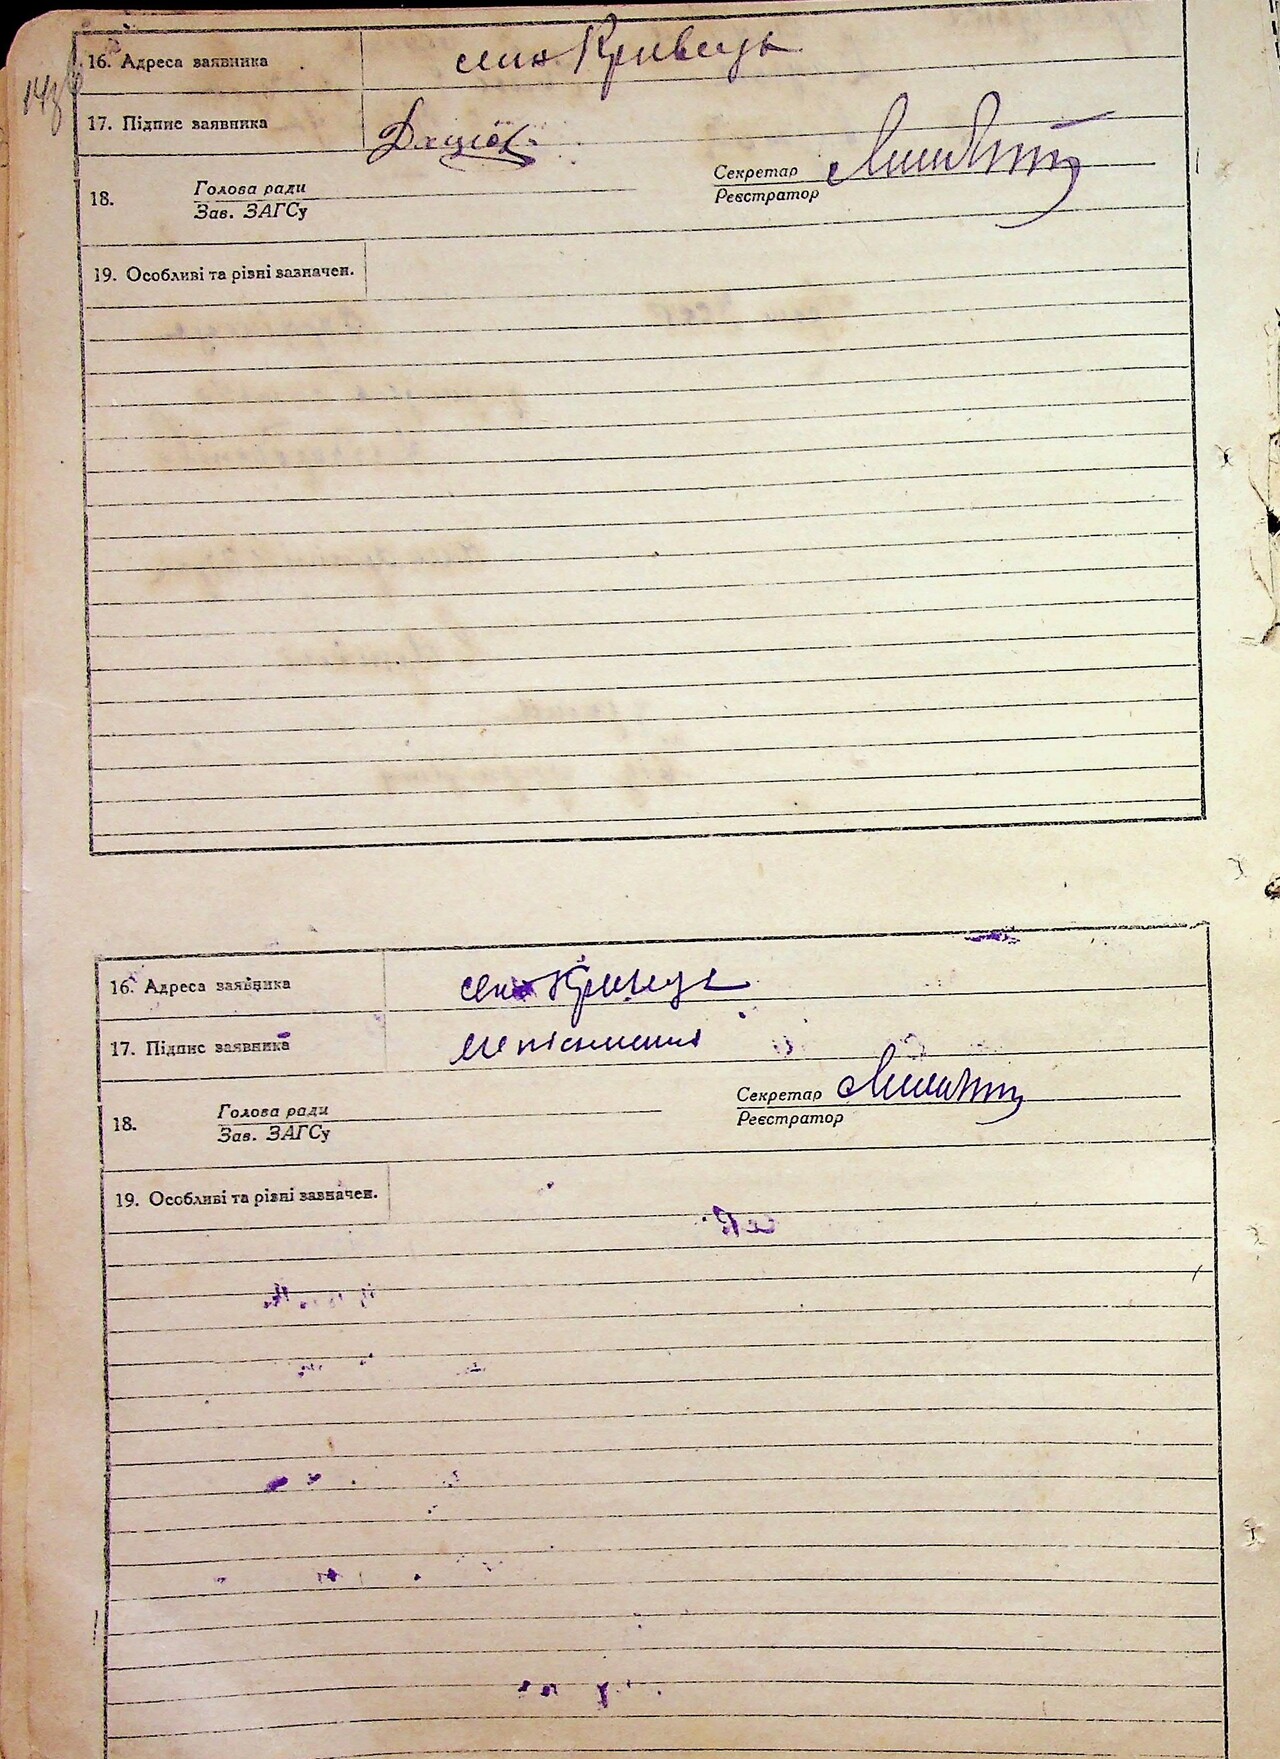 16. Адреса заявника село Кривець
17. Підпис заявника
18. Голова ради Секретар
Зав. ЗАГСу Реєстратор
19. Особливі та різні зазначен.
16. Адреса заявника село Кривець
17. Підпис заявника неписьменні
18. Голова ради Секретар
Зав. ЗАГСу Реєстратор
19. Особливі та різні зазначен.